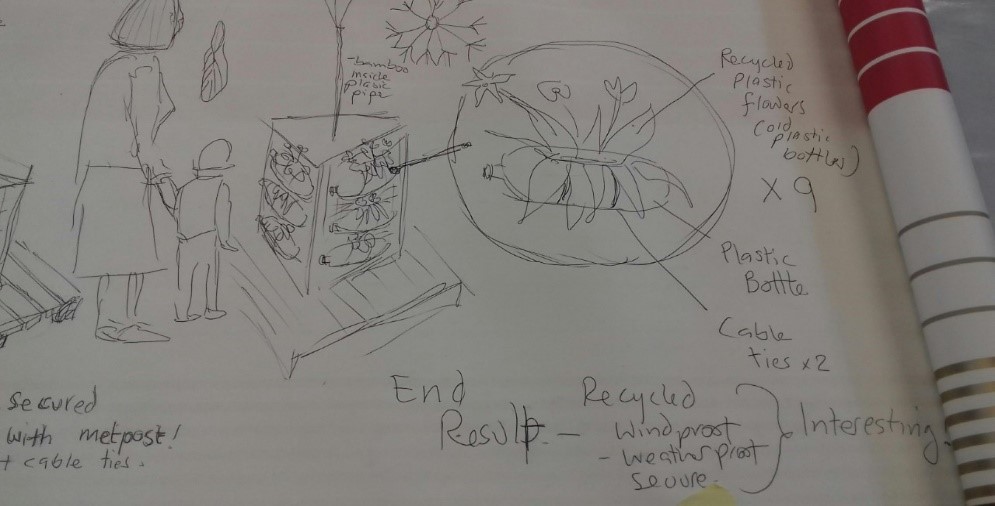 -bamboo
inside
plasic
pipe
Recycled
plastic
flowers
(old plastic
bottles)
x 9
Plastic
Bottle
Cable
ties x2
secured
with metpost!
+ cable ties.
End
Result. -
Recycled
Windproof
- weatherproof
secure.
Interesting.